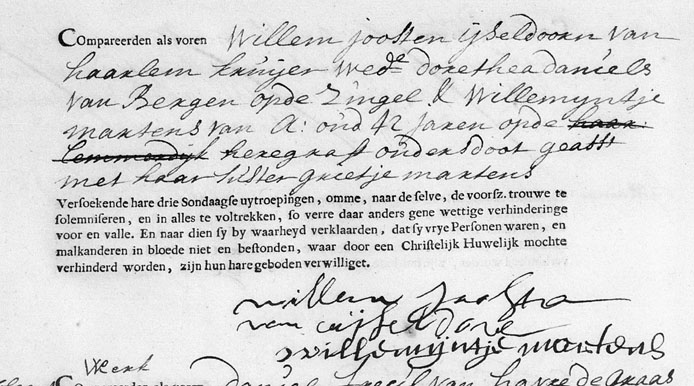 Compareerden als voren Willem joosten ijseldoorn van
haarlem kruijer wede dorethea daniels
van Bergen opde Zingel & Willemyntje
martens van A: oud 42 Jaren opde haar
lemmerdijk heregraft ouders doot geast
met haar suster greetje martens
Versoekende hare drie Sondaagse uytroepingen, omme, naar de selve, de voorsz. trouwe te
solemniseren, en in alles te voltrekken, so verre daar anders gene wettige verhinderinge
voor en valle. En naar dien sy by waarheyd verklaarden, dat sy vrye Personen waren, en
malkanderen in bloede niet en bestonden, waar door een Christelijk Huwelijk mochte
verhinderd worden, zijn hun hare geboden verwilliget.
willem Joosten
van
willemijntje martens
Werk
daniel van havre de graas